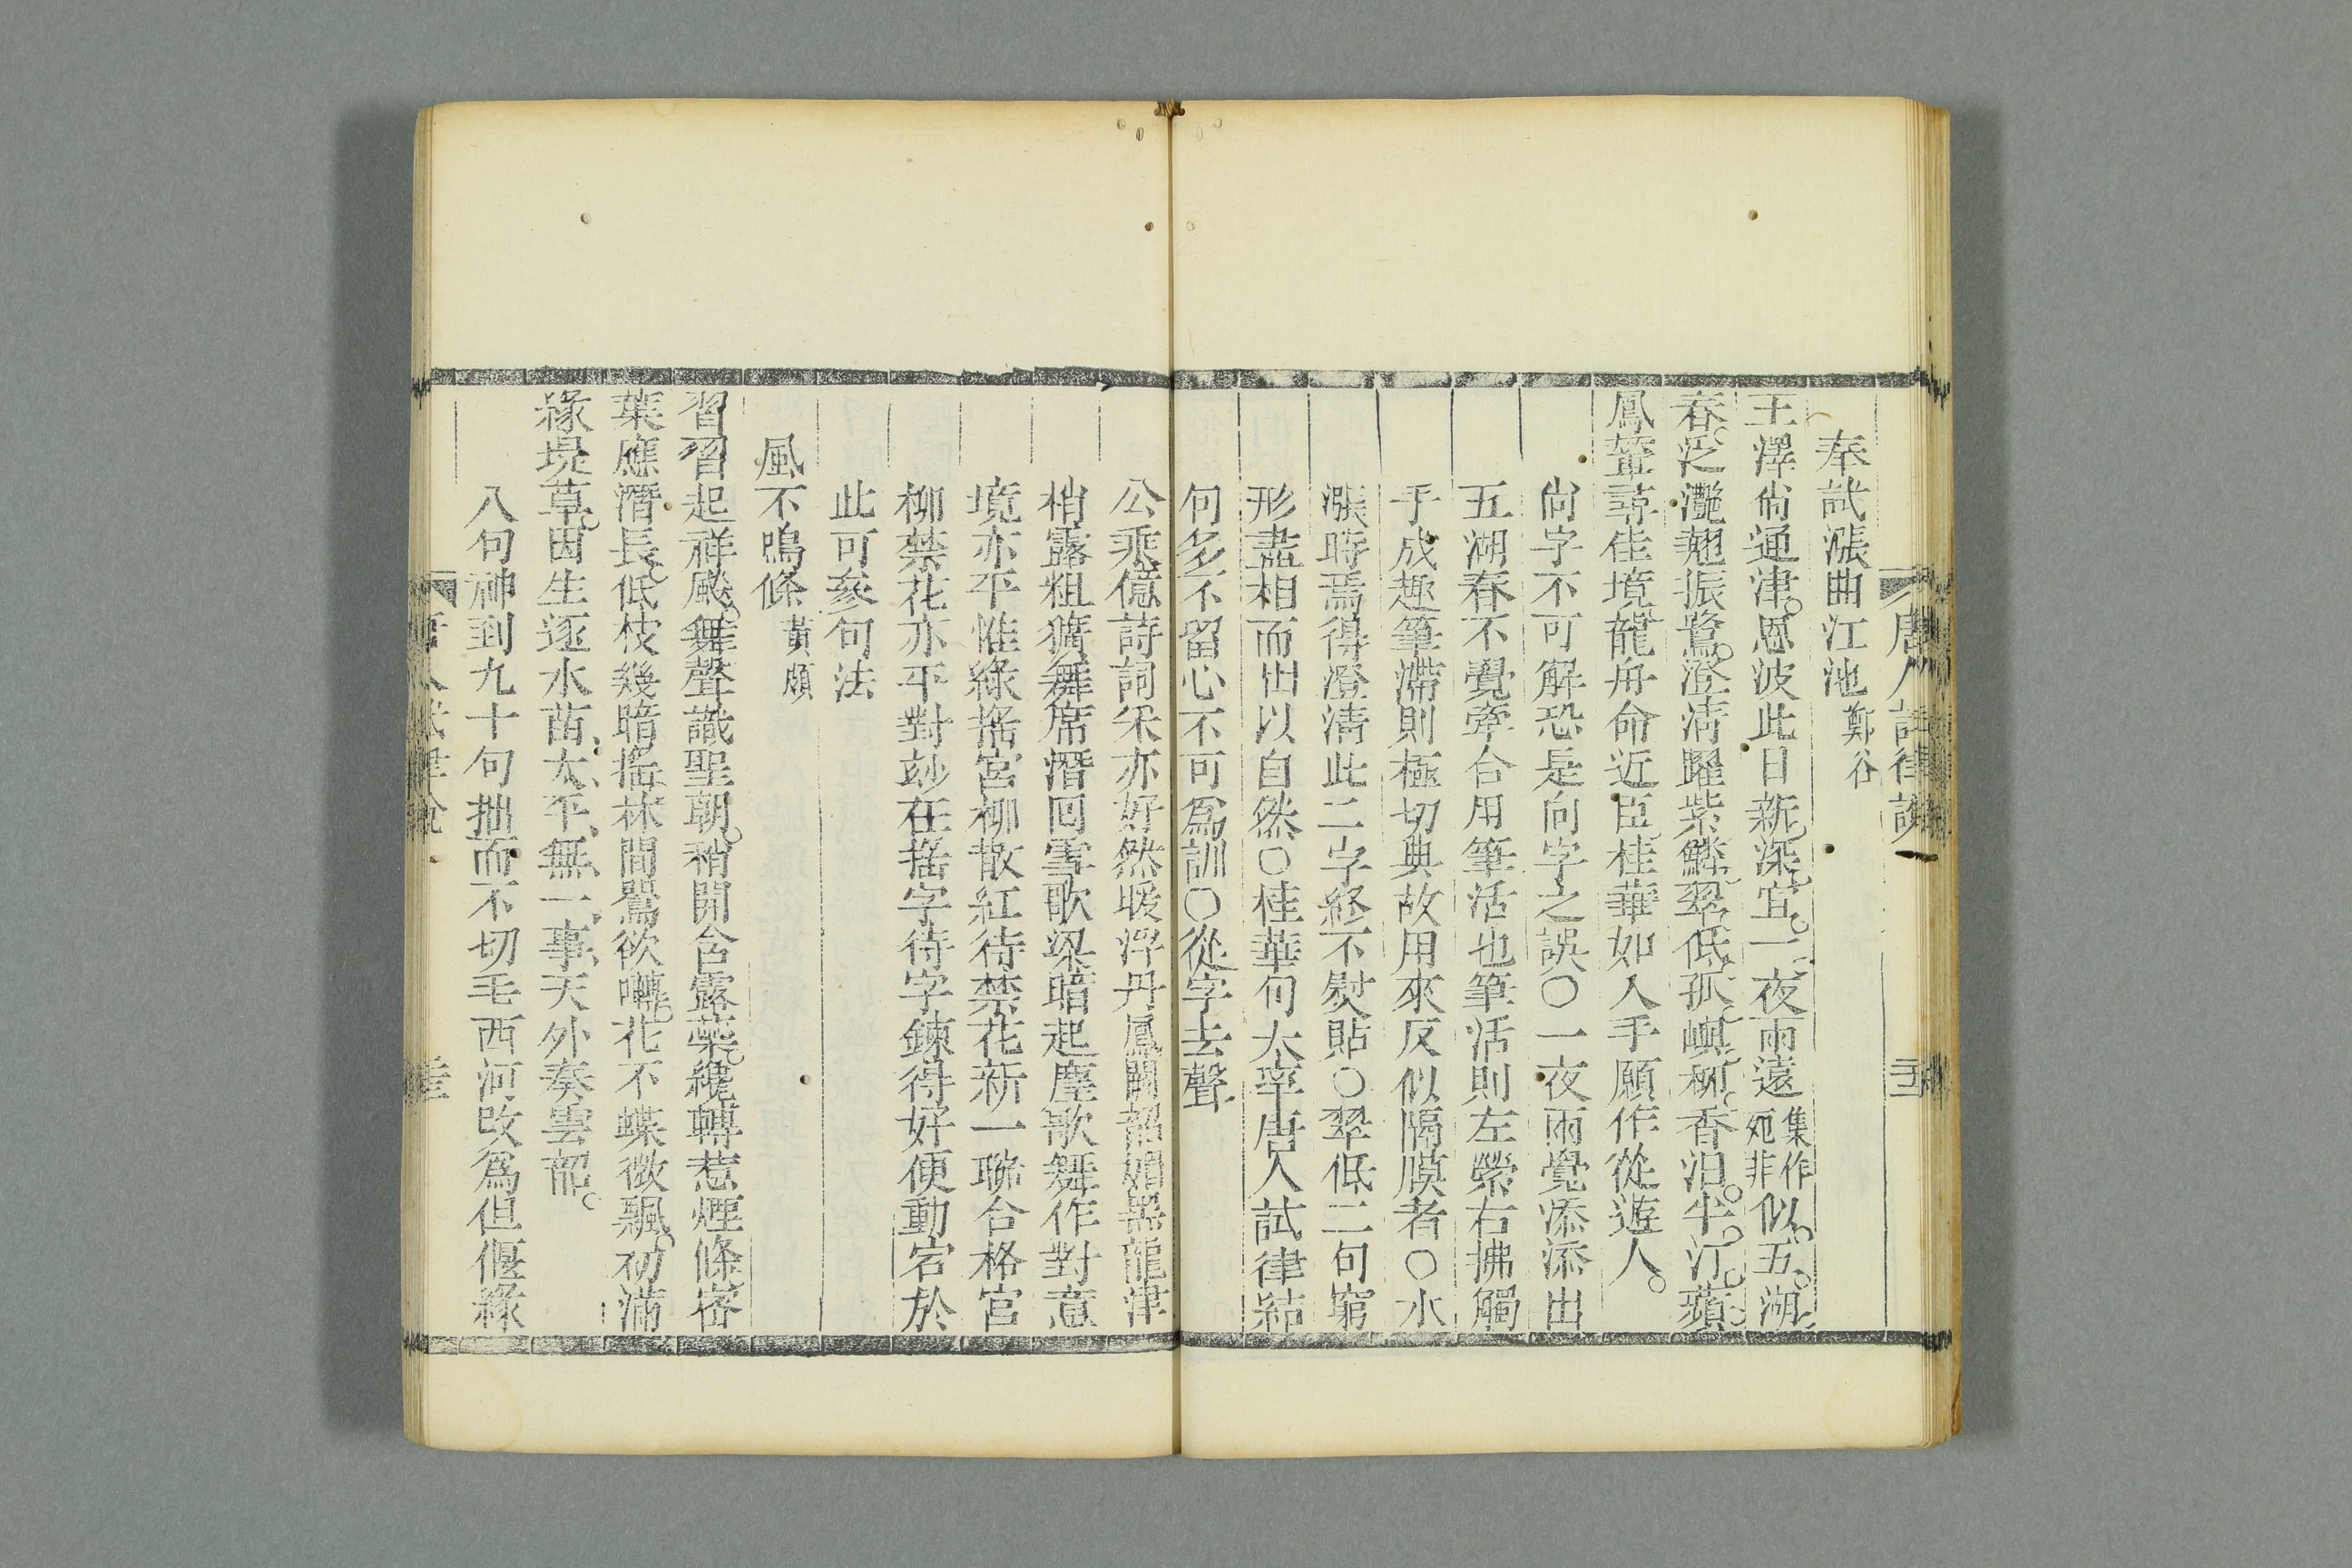 唐人試律說
奉試漲曲江池 鄭谷
王澤尙通津恩波此日新深宜一夜雨遠集作宛非似五湖
春泛灩翹振鷺澄清躍紫鱗翠低孤嶼柳香汨半汀蘋
鳳輦尋佳境龍舟命近臣桂華如入手願作從遊人
尙字不可解恐是向字之誤〇一夜雨覺添添出
五湖春不覺牽合用筆活也筆活則左縈右拂觸
手成趣筆滯則極切典故用來反似隔膜者〇水
漲時焉得澄清此二字終不熨貼〇翠低二句窮
形盡相而出以自然〇桂華句太率唐人試律結
句多不留心不可爲訓〇從字去聲
公乘億詩詞采亦好然暖浮丹鳳闕韶媚黑龍津
梢露粗獷舞席潛回雪歌梁暗起塵歌舞作對意
境亦平惟綠搖宮柳散紅待禁花新一聯合格官
柳禁花亦平對玅在搖字待字鍊得好便動宕於
此可參句法
風不鳴條 黃頗
習習起祥飈無聲識聖朝稍開含露蘂纔轉惹煙條密
葉應潛長低枝幾暗搖林間鶯欲囀花下蝶微飄初滿
緣堤草因生逐水苗太平無一事天外奏雲韶
八句神到九十句拙而不切毛西河改爲但偃緣